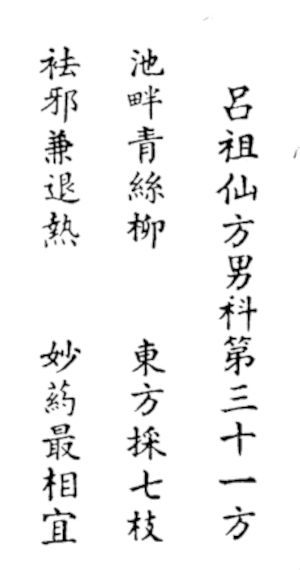 呂祖仙方男科第三十一方
池畔青絲柳　東方採七枝
袪邪兼退熱　妙葯最相宜